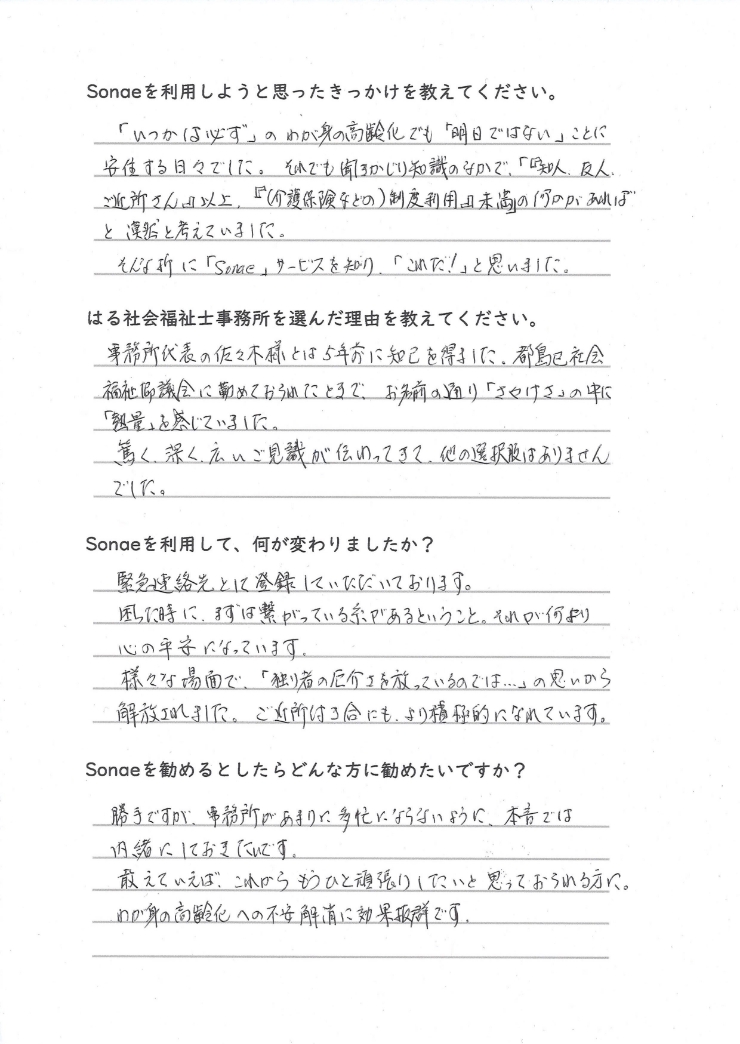 Sonaeを利用しようと思ったきっかけを教えてください。
「いつかは必ず」のわが身の高齢化でも「明日ではない」ことに
安住する日々でした。それでも聞きかじり知識のなかで、「『知人、友人、
ご近所さん』以上、『(介護保険などの)制度利用』未満」の何かがあれば
と漠然と考えていました。
そんな折に「Sonae」サービスを知り、「これだ!」と思いました。
はる社会福祉士事務所を選んだ理由を教えてください。
事務所代表の佐々木様とは5年前に知己を得ました。都島区社会
福祉協議会に勤めておられたときで、お名前の通り「さやけさ」の中に
「熱量」を感じていました。
篤く、深く、広いご見識が伝わってきて、他の選択肢はありません
でした。
Sonaeを利用して、何が変わりましたか?
緊急連絡先として登録していただいております。
困った時に、まずは繋がっている糸があるということ。それが何より
心の平安になっています。
様々な場面で、「独り者の厄介さを放っているのでは…」の思いから
解放されました。ご近所付き合にも、より積極的になれています。
Sonaeを勧めるとしたらどんな方に勧めたいですか?
勝手ですが、事務所があまりに多忙にならないように、本音では
内緒にしておきたいです。
敢えていえば、これからもうひと頑張りしたいと思っておられる方に。
わが身の高齢化への不安解消に効果抜群です。